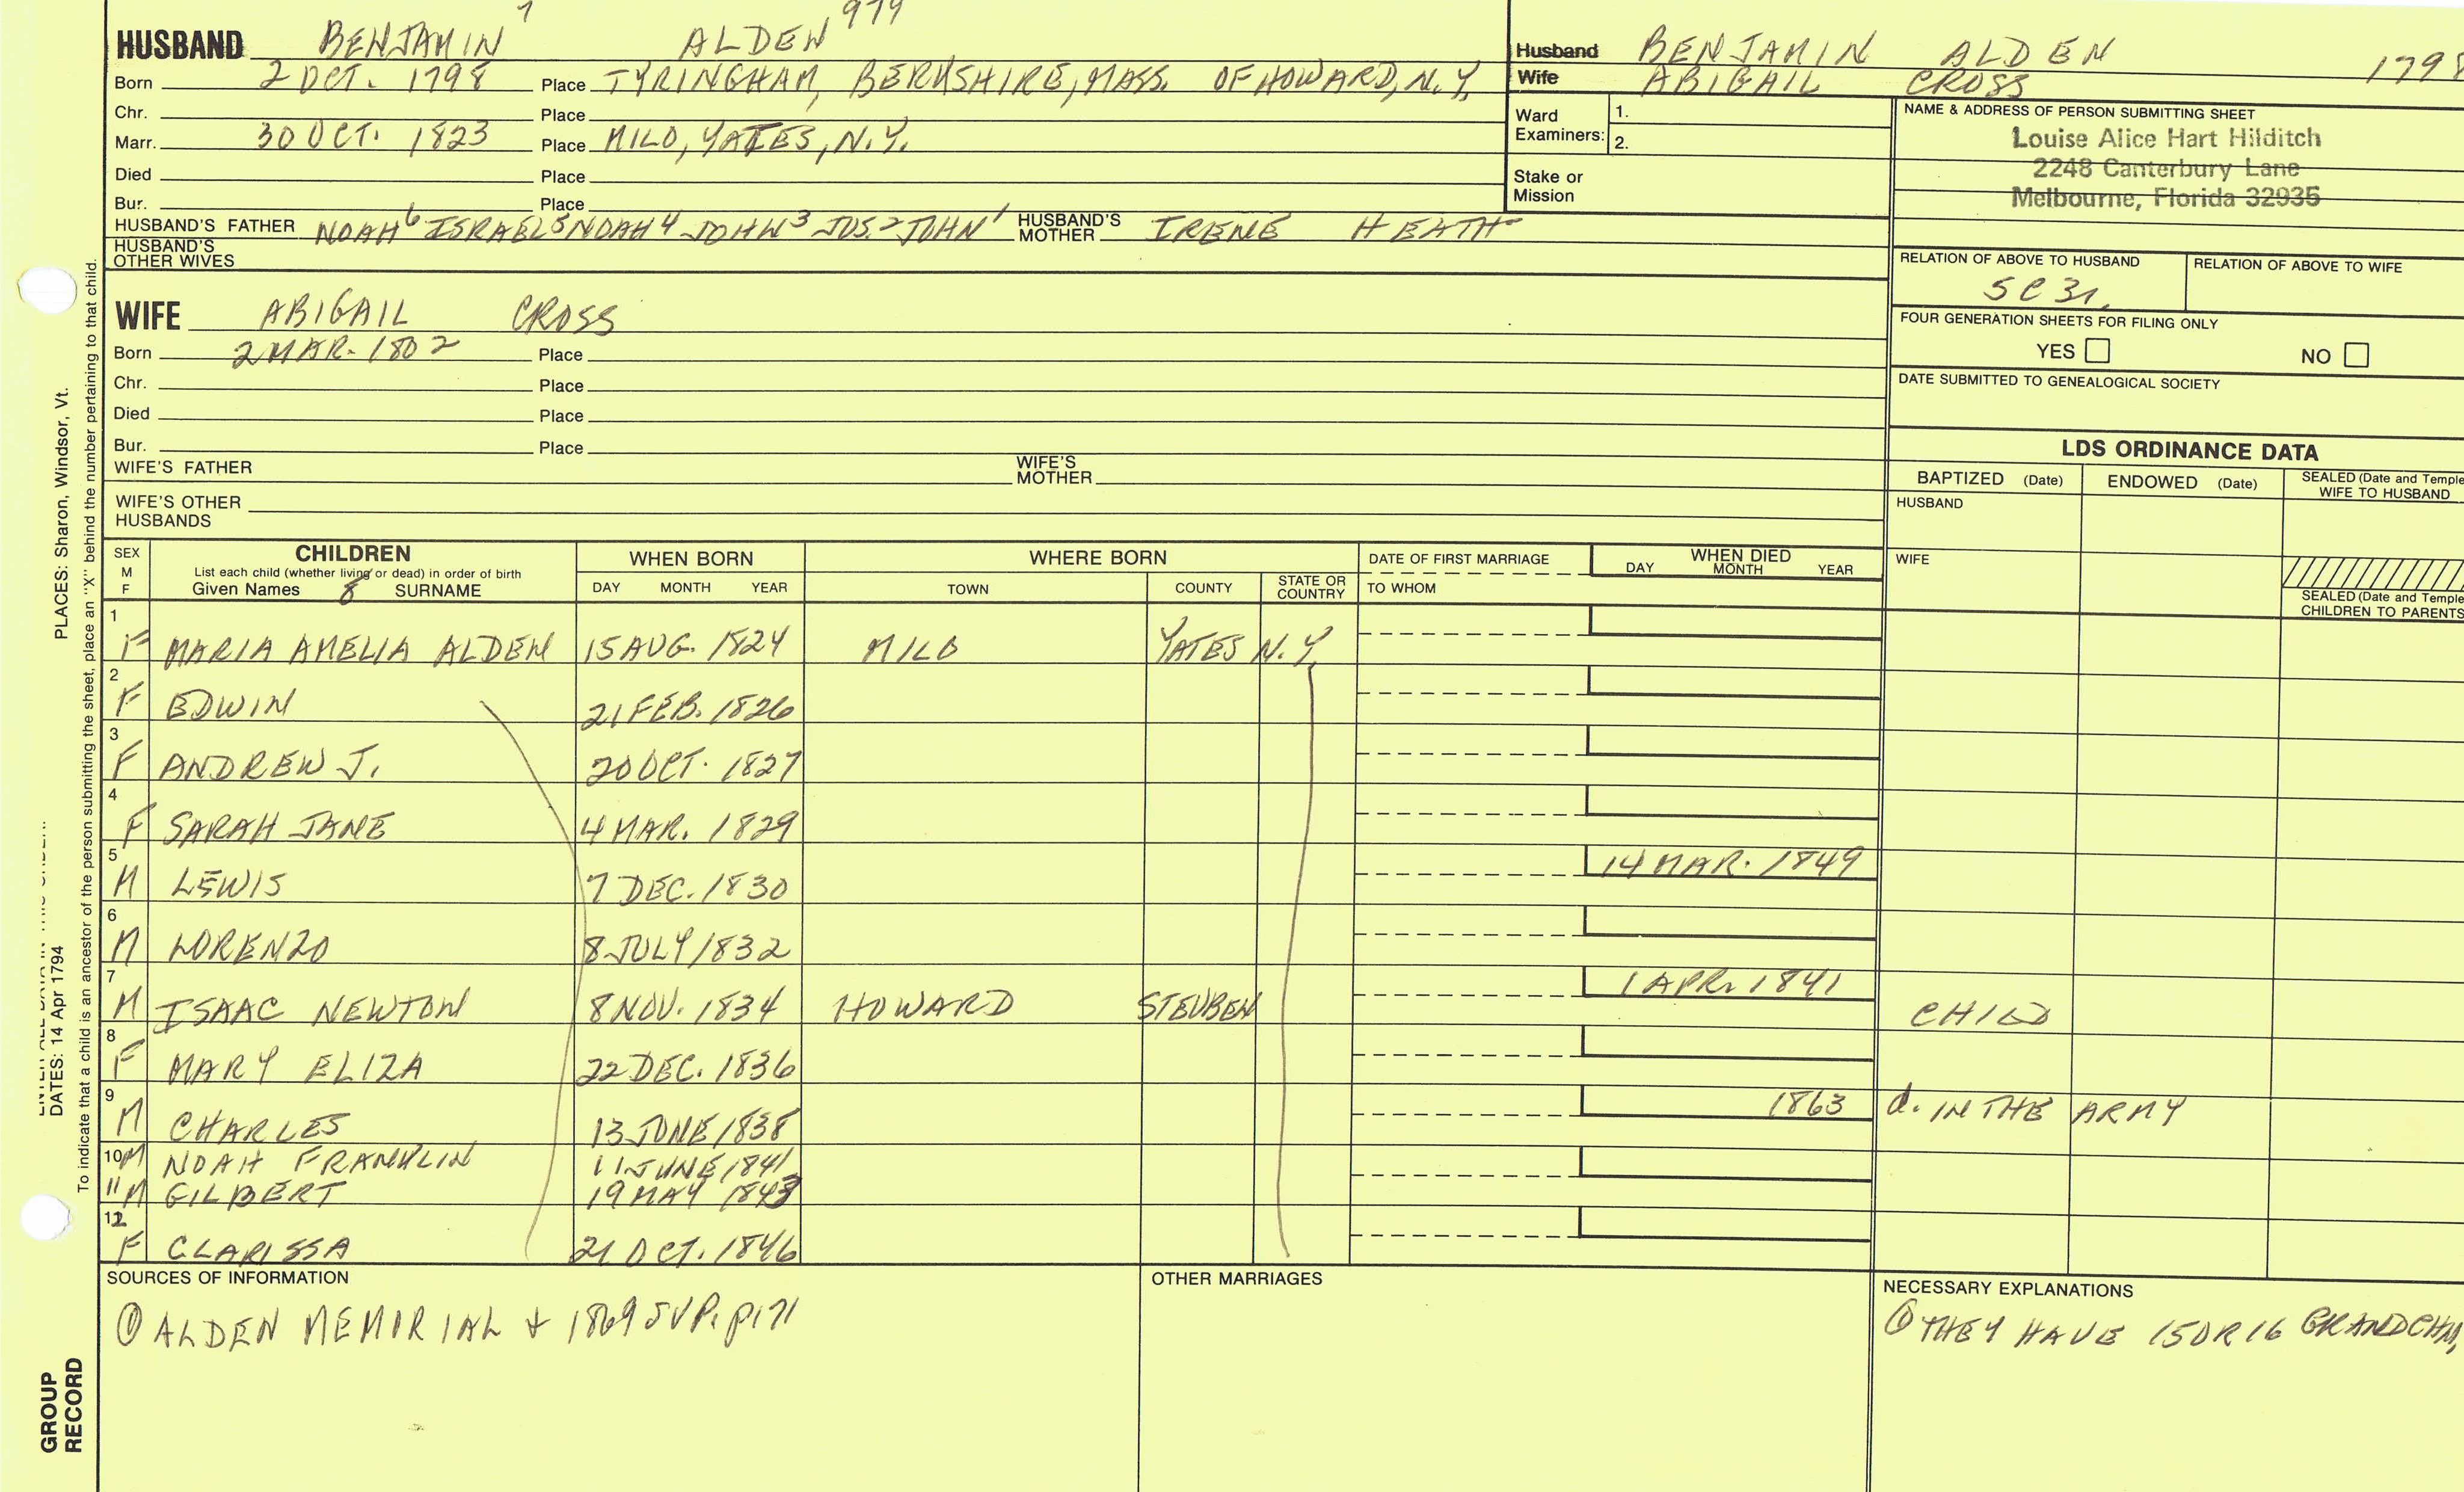 HUSBAND BENJAMIN 7 ALDEN 979
Born 2 OCT. 1798 Place TYRINGHAM, BERKSHIRE, MASS. OF HOWARD, N.Y.
Chr. Place
Marr. 30 OCT. 1823 Place MILO, YATES, N.Y.
Died Place
Bur. Place
HUSBAND'S FATHER NOAH 6 ISRAEL 5 NOAH 4 JOHN 3 JOS. 2 JOHN 1 HUSBAND'S MOTHER IRENE HEATH
HUSBAND'S OTHER WIVES
WIFE ABIGAIL CROSS
Born 2 MAR. 1802 Place
Chr. Place
Died Place
Bur. Place
WIFE'S FATHER WIFE'S MOTHER
WIFE'S OTHER HUSBANDS
Husband BENJAMIN ALDEN 1798
Wife ABIGAIL CROSS
Ward Examiners: 1.
2.
Stake or Mission
NAME & ADDRESS OF PERSON SUBMITTING SHEET
Louise Alice Hart Hilditch
2248 Canterbury Lane
Melbourne, Florida 32935
RELATION OF ABOVE TO HUSBAND RELATION OF ABOVE TO WIFE
5C3r.
FOUR GENERATION SHEETS FOR FILING ONLY
YES NO
DATE SUBMITTED TO GENEALOGICAL SOCIETY
LDS ORDINANCE DATA
BAPTIZED (Date) ENDOWED (Date) SEALED (Date and Temple
WIFE TO HUSBAND
HUSBAND
WIFE
SEALED (Date and Temple
CHILDREN TO PARENTS
SEX M F CHILDREN WHEN BORN WHERE BORN DATE OF FIRST MARRIAGE WHEN DIED
List each child (whether living or dead) in order of birth
Given Names 8 SURNAME DAY MONTH YEAR TOWN COUNTY STATE OR COUNTRY TO WHOM DAY MONTH YEAR
1 F MARIA AMELIA ALDEN 15 AUG. 1824 MILO YATES N.Y.
2 F EDWIN 21 FEB. 1826
3 F ANDREW J. 20 OCT. 1827
4 F SARAH JANE 4 MAR. 1829
5 M LEWIS 7 DEC. 1830 14 MAR. 1849
6 M LORENZO 8 JULY 1832
7 M ISAAC NEWTON 8 NOV. 1834 HOWARD STEUBEN 1 APR. 1841 CHILD
8 F MARY ELIZA 22 DEC. 1836
9 M CHARLES 13 JUNE 1838 1863 d. IN THE ARMY
10 M NOAH FRANKLIN 11 JUNE 1841
11 M GILBERT 19 MAY 1843
12 F CLARISSA 21 OCT. 1846
SOURCES OF INFORMATION
① ALDEN MEMORIAL + 1869 SUP. p171
OTHER MARRIAGES
NECESSARY EXPLANATIONS
① THEY HAVE 15 OR 16 GRANDCHN,
PLACES: Sharon, Windsor, Vt.
DATES: 14 Apr 1794
To indicate that a child is an ancestor of the person submitting the sheet, place an "X" behind the number pertaining to that child.
GROUP
RECORD